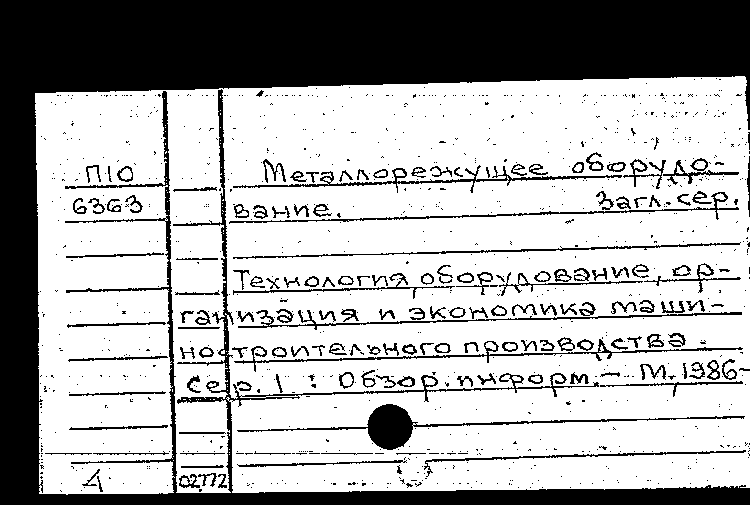 П10 Металлорежущее оборудо-
6363 вание. Загл. сер.
Технология, оборудование, ор-
ганизация и экономика маши-
ностроительного производства.
Сер. 1 : Обзор. информ. – М., 1986-
4 02772